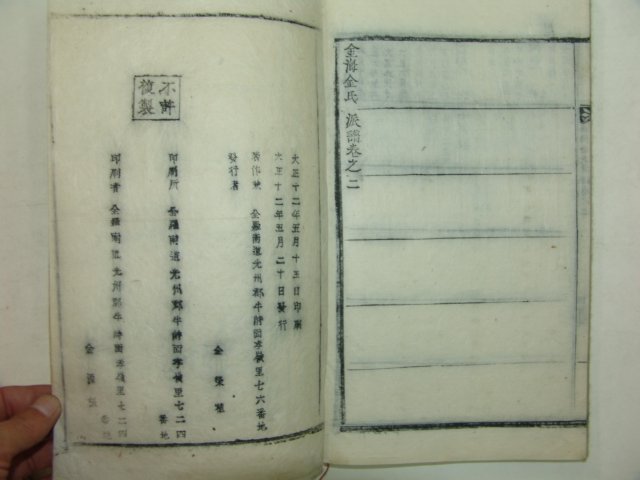 金海金氏派譜卷之二
大正十二年五月十五日印刷
大正十二年五月二十日發行
著作兼
發行者
全羅南道光州郡牛峙面李嶺里七六番地
金榮
印刷所
全羅南道光州郡牛峙面李嶺里七二四番地
印刷者
全羅南道光州郡牛峙面李嶺里七二四番地
金
不許
複製